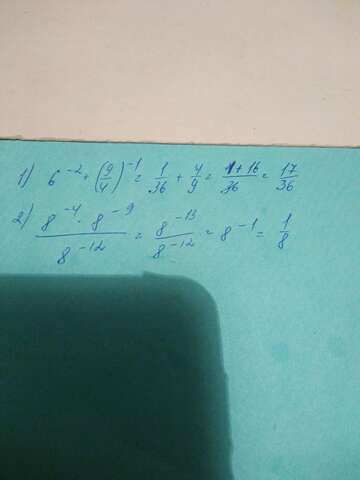 1) 6⁻² + (9/4)⁻¹ = 1/36 + 4/9 = 1+16/36 = 17/36
2) 8⁻⁴ · 8⁻⁹ / 8⁻¹² = 8⁻¹³ / 8⁻¹² = 8⁻¹ = 1/8